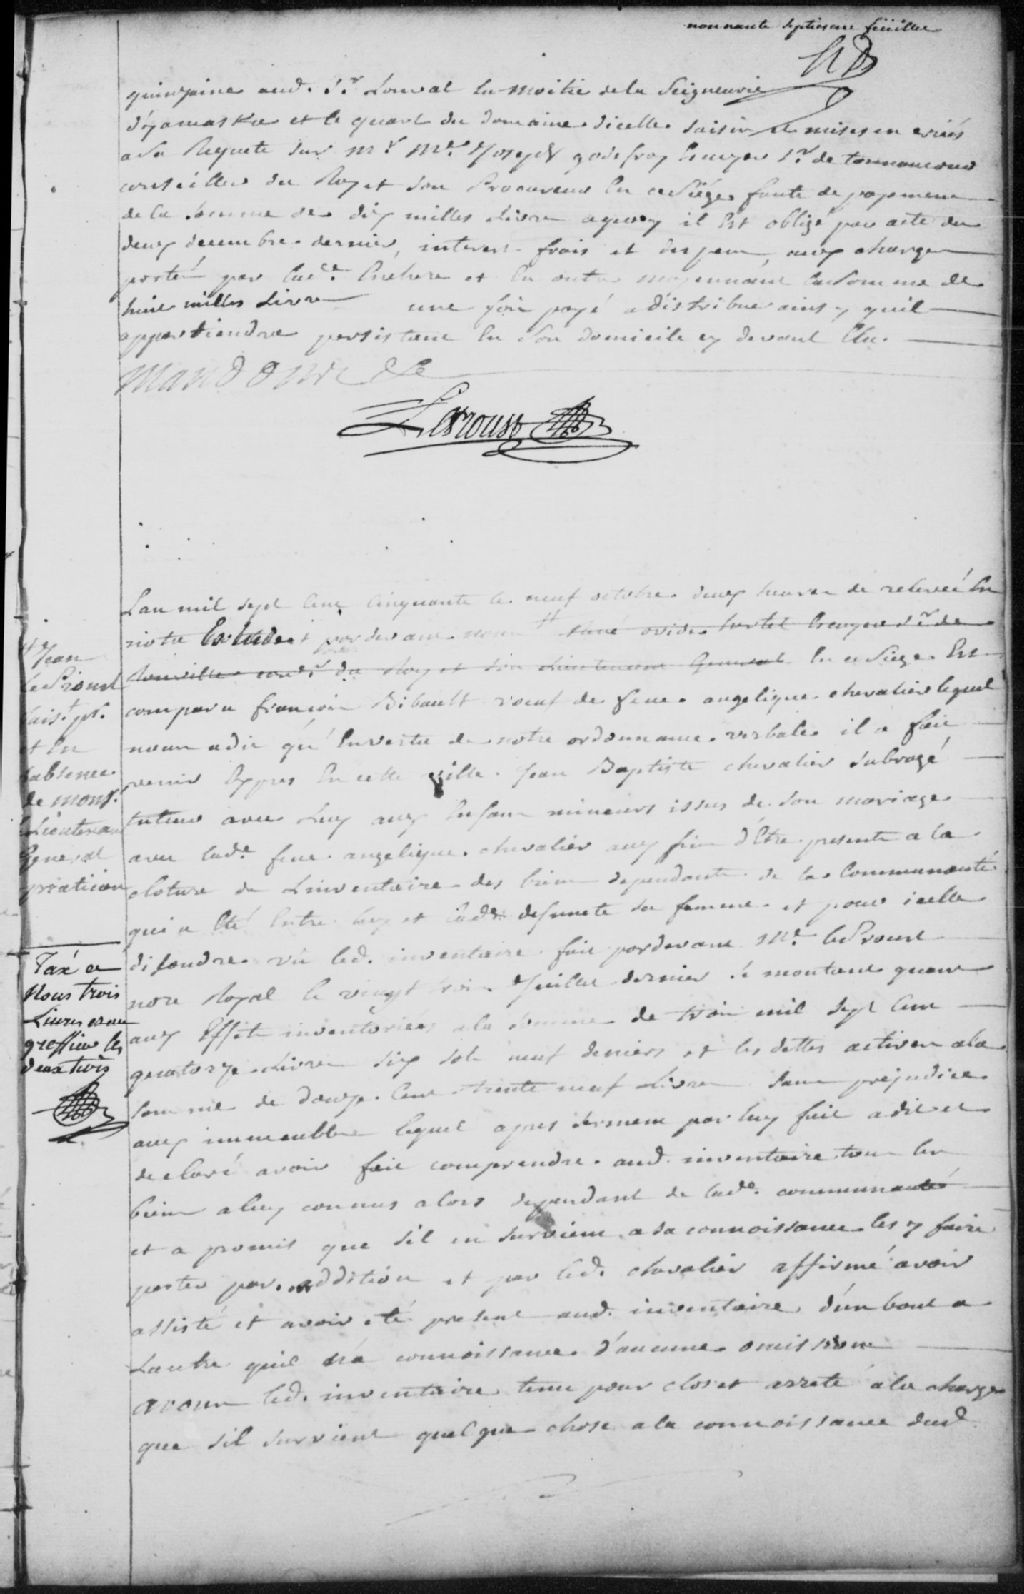 nonnante septiesme feüillet
quinzaine aud. Sr. Louval la moitie de la Seigneurie
d'yamaska et le quart du domaine dicelle saisir et mises en criées
a sa Requete sur Mr. Me. Joseph godefroy Ecuyer Sr. de tonnancour
conseiller du Roy et son Procureur En ce Siége faute de payement
de la somme de dix milles Livres aquoy il Est obligé par acte du
deux decembre dernier, interest frais et depens, aux charges
portés par lade. Enchere et En outre moyennant la somme de
huit milles Livres une fois payé a distribuer ainsy quil
appartiendra persistant En son domicile cy devant Elu.
Mandons &c
Larouse
Lan mil sept Cent Cinquante le neuf octobre deux heures de relevée En
notre Estude pardevant nous # René ovide hertel Ecuyer Sr. de
Rouville conser. du Roy et son Lieutenant General En ce Siege Est
comparu françois Bibault veuf de feue angelique chevalier lequel
nous a dit qu'Envertu de notre ordonnance verbale il a fait
venir Expres En cette ville Jean Baptiste chevalier Subrogé
tuteur avec Luy aux Enfans mineurs issus de son mariage
avec lade. feue angelique chevalier aux fin d'Etre presente a la
cloture de Linventaire des biens dependants de la Communauté
qui a Eté Entre luy et lade. defuncte sa femme et pour icelle
disoudre vû led. inventaire fait pardevant Me. le Proust
nore Royal le vingt trois Juillet dernier se montant quant
aux Effets inventoriées a la somme de trois mil sept Cent
quatorze Livres six sols neuf deniers et les dettes actives a la
somme de douze Cent trente neuf Livres sans prejudice
aux immeubles lequel apres serment par luy fait a dit et
declaré avoir fait comprendre aud. inventaire tous les
biens a luy connus alors dependant de lade. communauté
et a promis que sil en survient a sa connoissance les y faire
porter par addition et par led. chevalier affirmé avoir
assisté et avoir été present aud. inventaire d'un bout a
Lautre quil n'a connoissance d'aucune omission
avons led. inventaire tenu pour clos et arreté a la charge
que sil survient quelque chose a la connoissance dud.
# Jean
le Proust
fais.t pt.
et En
l'absence
de Monsr.
Lieutenant
General
praticien
Taxé a
Nous trois
Livres et au
greffier les
deux tiers